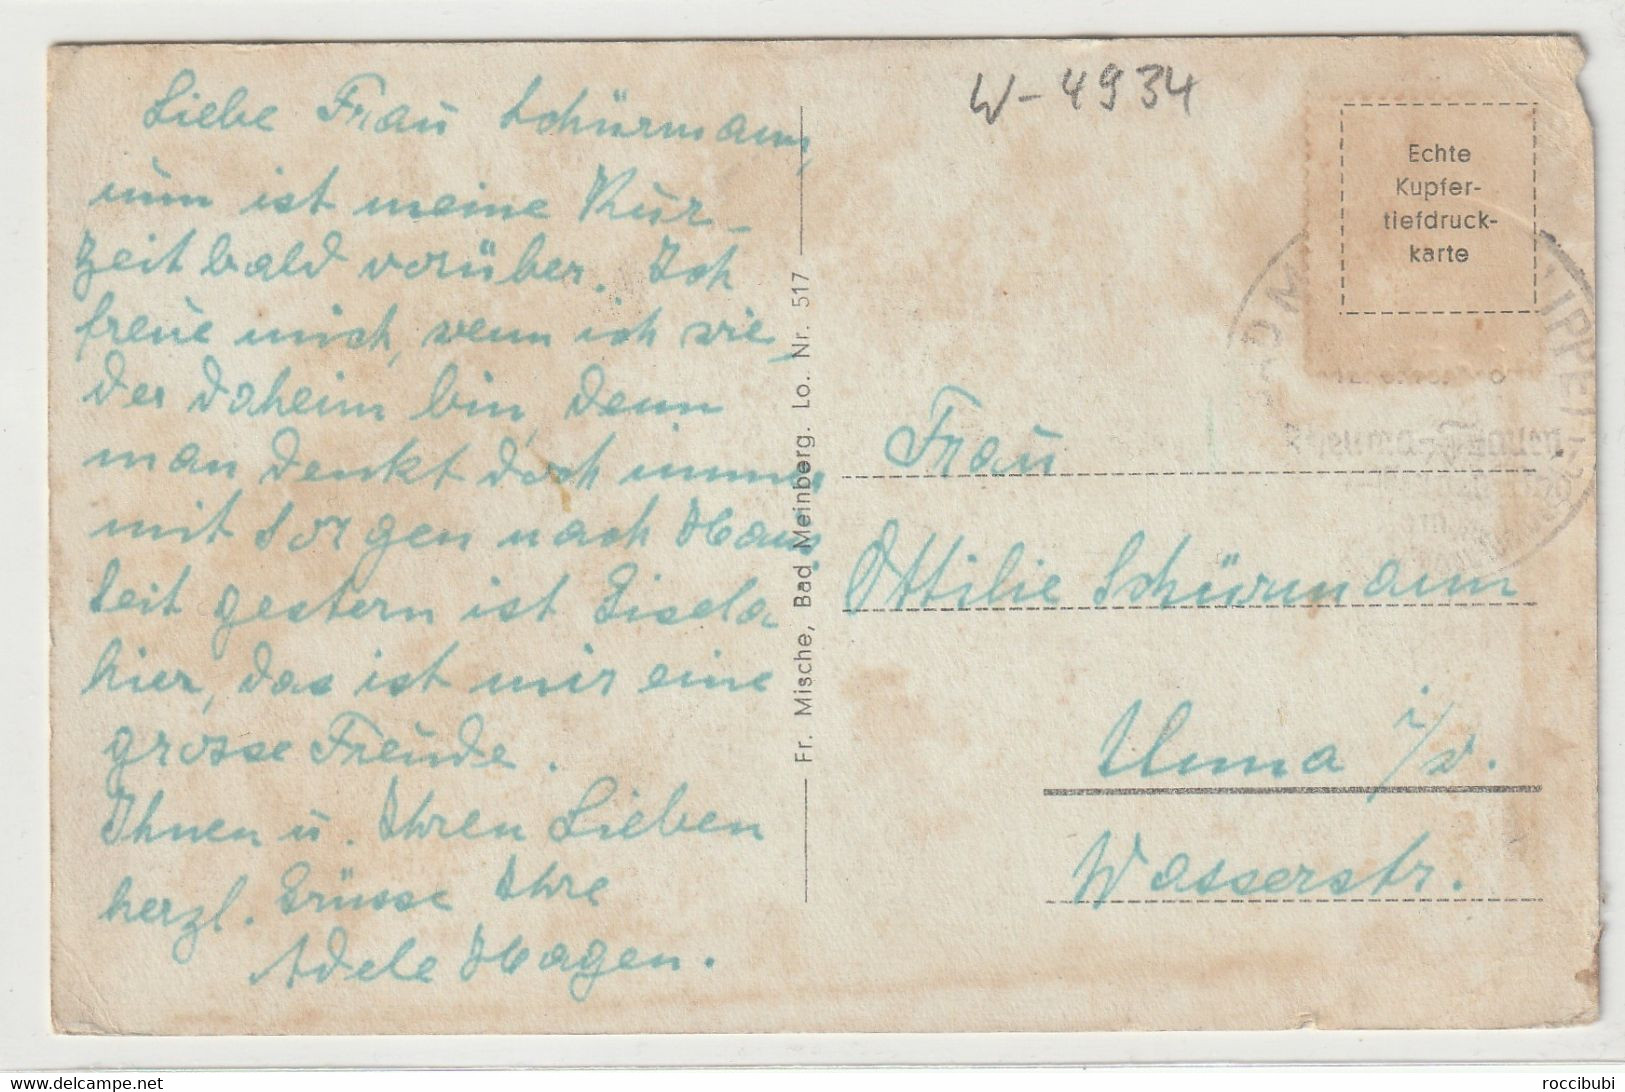 Liebe Frau Schürmann,
nun ist meine Kur-
zeit bald vorüber. Ich
freue mich, wenn ich wie-
der daheim bin, denn
man denkt doch immer
mit Sorgen nach Haus.
Seit gestern ist Gisela
hier, das ist mir eine
grosse Freude.
Ihnen u. Ihren Lieben
herzl. Grüsse Ihre
Adele Hagen.
Fr. Mische, Bad Meinberg. Lo. Nr. 517
W-4934
Echte
Kupfer-
tiefdruck-
karte
Frau
Ottilie Schürmann
Unna i/W.
Wasserstr.
delcampe.net
roccibubi